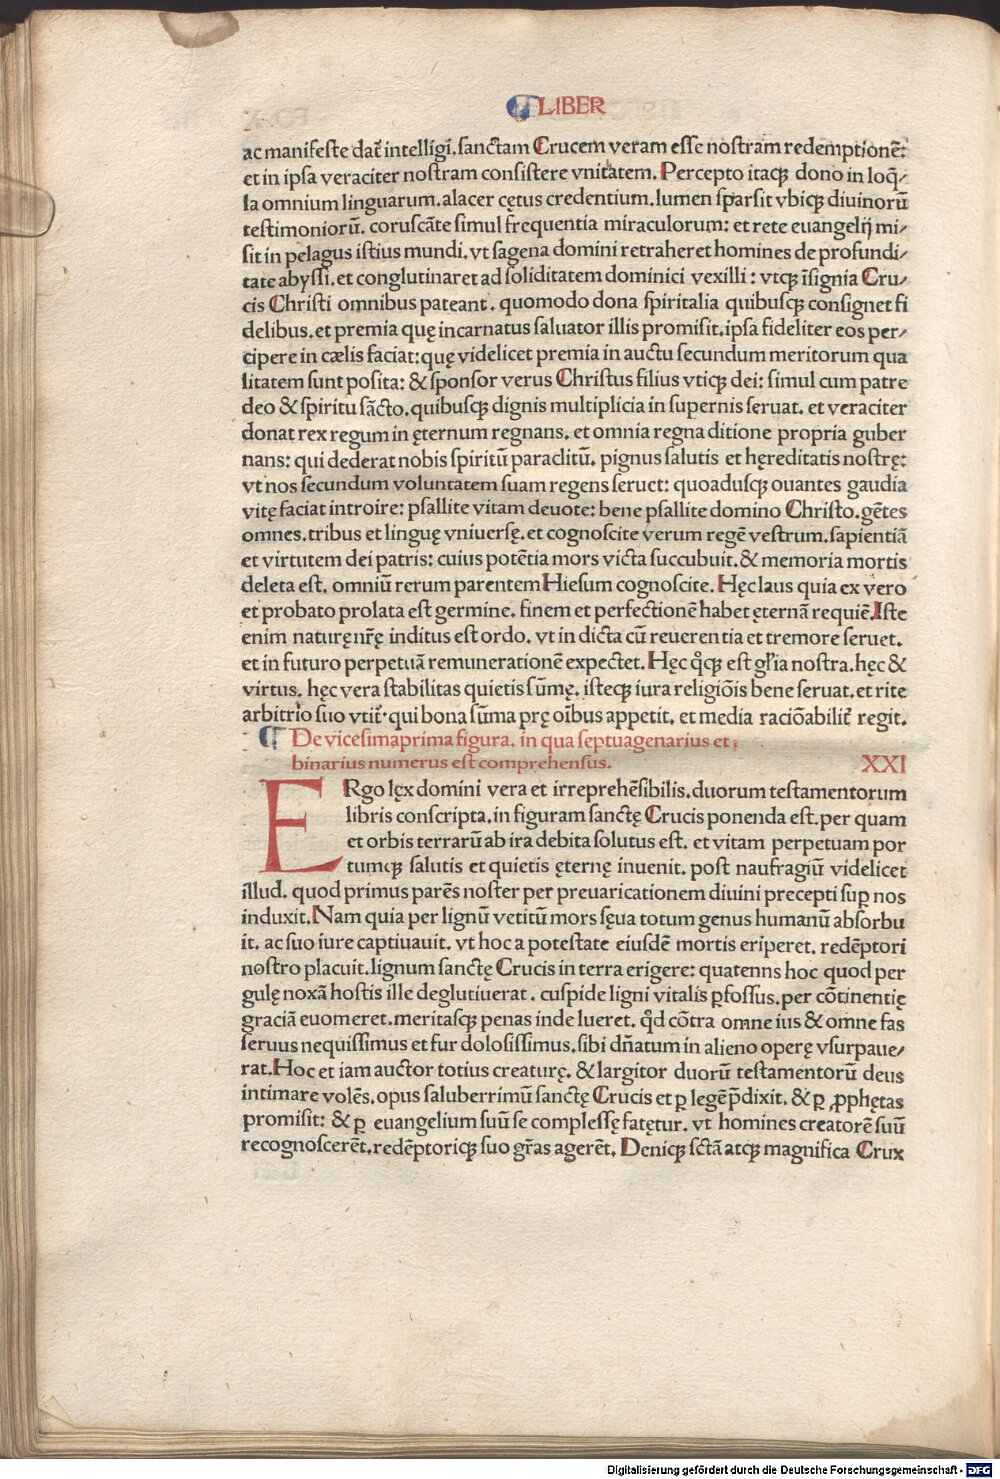 ¶ LIBER
ac manifeste dat᷑ intelligi. sanctam Crucem veram esse nostram redemptionē:
et in ipsa veraciter nostram consistere vnitatem. Percepto itaqꝫ dono in loq̄⸗
la omnium linguarum. alacer cętus credentium. lumen sparsit vbiqꝫ diuinorū
testimoniorū. coruscāte simul frequentia miraculorum: et rete euangelij mi⸗
sit in pelagus istius mundi. vt sagena domini retraheret homines de profundi⸗
tate abyssi. et conglutinaret ad soliditatem dominici vexilli: vtqꝫ īsignia Cru⸗
cis Christi omnibus pateant. quomodo dona spiritalia quibusqꝫ consignet fi
delibus. et premia quę incarnatus saluator illis promisit. ipsa fideliter eos per⸗
cipere in cælis faciat: quę videlicet premia in auctu secundum meritorum qua
litatem sunt posita: & sponsor verus Christus filius vtiqꝫ dei: simul cum patre
deo & spiritu sācto. quibusqꝫ dignis multiplicia in supernis seruat. et veraciter
donat rex regum in ęternum regnans. et omnia regna ditione propria guber
nans: qui dederat nobis spiritū paraclitū. pignus salutis et hęreditatis nostrę:
vt nos secundum voluntatem suam regens seruet: quoadusqꝫ ouantes gaudia
vitę faciat introire: psallite vitam deuote: bene psallite domino Christo. gētes
omnes. tribus et linguę vniuersę. et cognoscite verum regē vestrum. sapientiā
et virtutem dei patris: cuius potētia mors victa succubuit. & memoria mortis
deleta est. omniū rerum parentem Hiesum cognoscite. Hęc laus quia ex vero
et probato prolata est germine. finem et perfectionē habet ęternā requiē. Iste
enim naturę nr̄ę inditus est ordo. vt in dicta cū reuerentia et tremore seruet.
et in futuro perpetuā remunerationē expectet. Hęc qͦcꝫ est gl̄ia nostra. hęc &
virtus. hęc vera stabilitas quietis sūmę. isteqꝫ iura religiōis bene seruat. et rite
arbitrio suo vtit᷑. qui bona sūma prę oībus appetit. et media raciōabilit᷑ regit.
¶ De vicesimaprima figura. in qua septuagenarius et
binarius numerus est comprehensus. XXI
ERgo lęx domini vera et irreprehēsibilis. duorum testamentorum
libris conscripta. in figuram sanctę Crucis ponenda est. per quam
et orbis terrarū ab ira debita solutus est. et vitam perpetuam por
tumqꝫ salutis et quietis ęternę inuenit. post naufragiū videlicet
illud. quod primus parēs noster per preuaricationem diuini precepti sup̱ nos
induxit. Nam quia per lignū vetitū mors sęua totum genus humanū absorbu
it. ac suo iure captiuauit. vt hoc a potestate eiusdē mortis eriperet. redēptori
nostro placuit. lignum sanctę Crucis in terra erigere: quatenns hoc quod per
gulę noxā hostis ille deglutiuerat. cuspide ligni vitalis ꝑfossus. per cōtinentię
graciā euomeret. meritasqꝫ penas inde lueret. qͩd cōtra omne ius & omne fas
seruus nequissimus et fur dolosissimus. sibi dn̄atum in alieno operę vsurpaue⸗
rat. Hoc et iam auctor totius creaturę. & largitor duorū testamentorū deus
intimare volēs. opus saluberrimū sanctę Crucis et ꝑ legē p̄dixit. & ꝑ ꝓphętas
promisit: & ꝑ euangelium suū se complessę fatętur. vt homines creatorē suū
recognoscerēt. redēptoriqꝫ suo gr̄as agerēt. Deniqꝫ sctā atqꝫ magnifica Crux
Digitalisierung gefördert durch die Deutsche Forschungsgemeinschaft - DFG